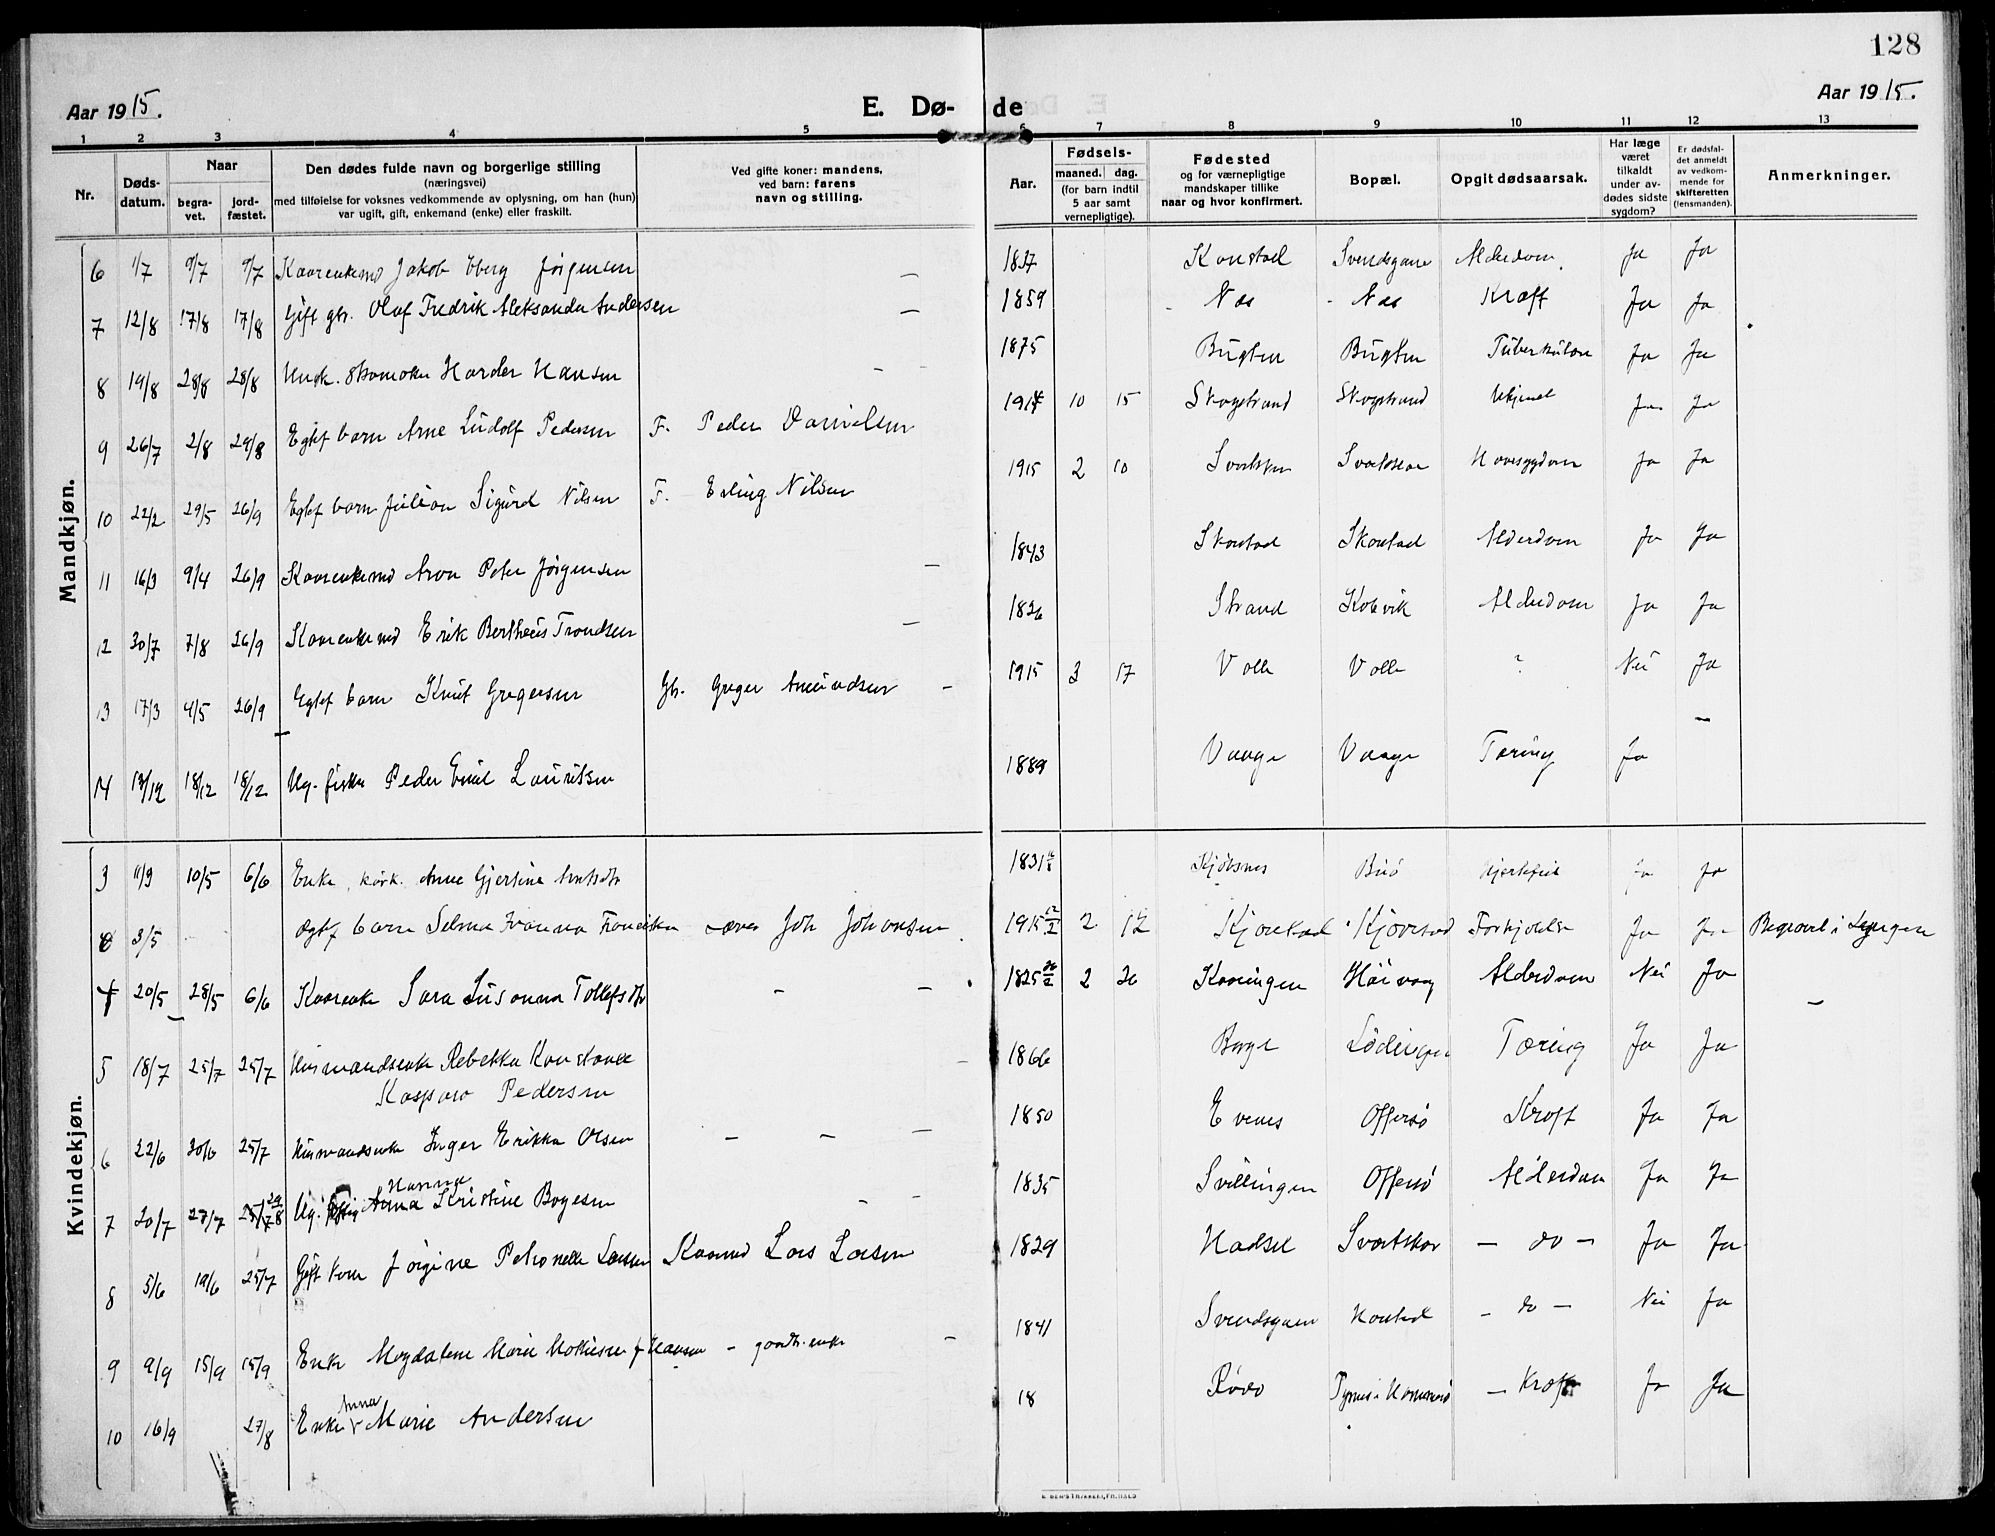 128
Aar 1915.
E. Dø-
de
Aar 1915.
1 2 3 4 5 6 7 8 9 10 11 12 13
Nr.
Døds-
datum.
Naar
begra-
vet.
jord-
fæstet.
Den dødes fulde navn og borgerlige stilling
(næringsvei)
med tilføielse for voksnes vedkommende av oplysning, om han (hun)
var ugift, gift, enkemand (enke) eller fraskilt.
Ved gifte koner: mandens,
ved barn: farens
navn og stilling.
Aar.
Fødsels-
maaned. dag.
(for barn indtil
5 aar samt
vernepligtige).
Fødested
og for værnepligtige
mandskaper tillike
naar og hvor konfirmert.
Bopæl.
Opgit dødsaarsak.
Har læge
været
tilkaldt
under av-
dødes sidste
sygdom?
Er dødsfal-
det anmeldt
av vedkom-
mende for
skifteretten
(lensmanden).
Anmerkninger.
Mandkjøn.
6 1/7 9/7 9/7 Jakob Jørgensen — 1837 Svendsgam Alderdom Ja Ja
7 12/8 17/8 17/8 Gift gbr. Olaf Fredrik Aleksander Andersen — 1859 Nes Nes Kræft Ja Ja
8 19/8 28/8 28/8 Harder Hansen — 1875 Bugten Bugten Tuberkulose Ja Ja
9 26/7 2/8 29/8 Egtef barn Arne Ludolf Pedersen F. Peder Danielsen 1914 10 15 Skogstrand Skogstrand Ukjendt Ja Ja
10 22/2 29/5 26/9 Egtef barn Julian Sigurd Nilsen F. Erling Nilsen 1915 2 10 Svartskar Svartskar Ja Ja
11 16/3 9/4 26/9 Aron Peter Jørgensen — 1843 Skarstad Skarstad Alderdom Ja Ja
12 30/7 7/8 26/9 Erik Bertheus Trondsen — 1826 Strand Kobvik Alderdom Ja Ja
13 17/3 4/5 26/9 Egtef barn Knut Gregersen Gbr. Greger Amundsen — 1915 3 17 Valle Valle ? Nei Ja
14 18/12 18/12 Ug. fisker Peder Emil Lauritsen 1889 Vaage Vaage Tæring Ja —
Kvindekjøn.
3 11/3 10/5 6/6 Enke, kårk. Anne Gjertine 1831 Ja Ja
3/5 Ægtef barn Selma Joh Johansen 1915 12/2 2 12 Kjørstad Ja Ja Begravet i
4 20/5 28/5 6/6 Sara Susanna Tollefsdtr — — 1825 26/2 2 26 Alderdom Nei Ja —
5 18/7 25/7 25/7 Husmandsenke Rebekka Konstanse
Kaspara Pedersen — 1866 Borge Lødingen Tæring Ja Ja
6 22/6 30/6 25/7 Husmandsenke Inger Erikka Olsen — — — 1850 Evenes Offersø Kræft Ja Ja
Hanna
7 20/7 27/7 25/7 29/8 Ug. Anna Kristine Bogesen — — 1835 Offersø Alderdom Ja Ja
8 5/6 19/6 25/7 Gift kone Jørgine Petronelle Larsen Lars Larsen 1829 Hadsel Svartskar — do — Ja Ja
9 9/9 15/9 15/9 Enke Magdalene Marie Hansen — gaardbr. enke — 1841 Svendsgam — do — Nei Ja
Anna
10 16/9 27/8 Enke Marie Andersen 18 — Kræft Ja Ja